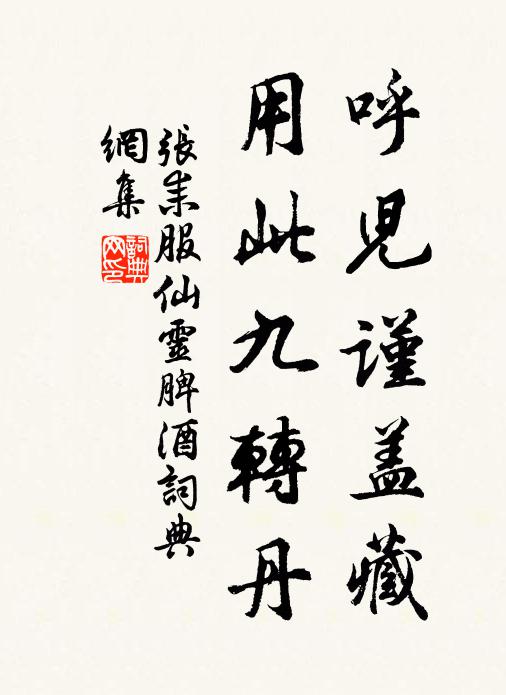 呼児謹盖藏
用此九轉丹
張耒服仙靈脾酒詞典
網集
詞典網印